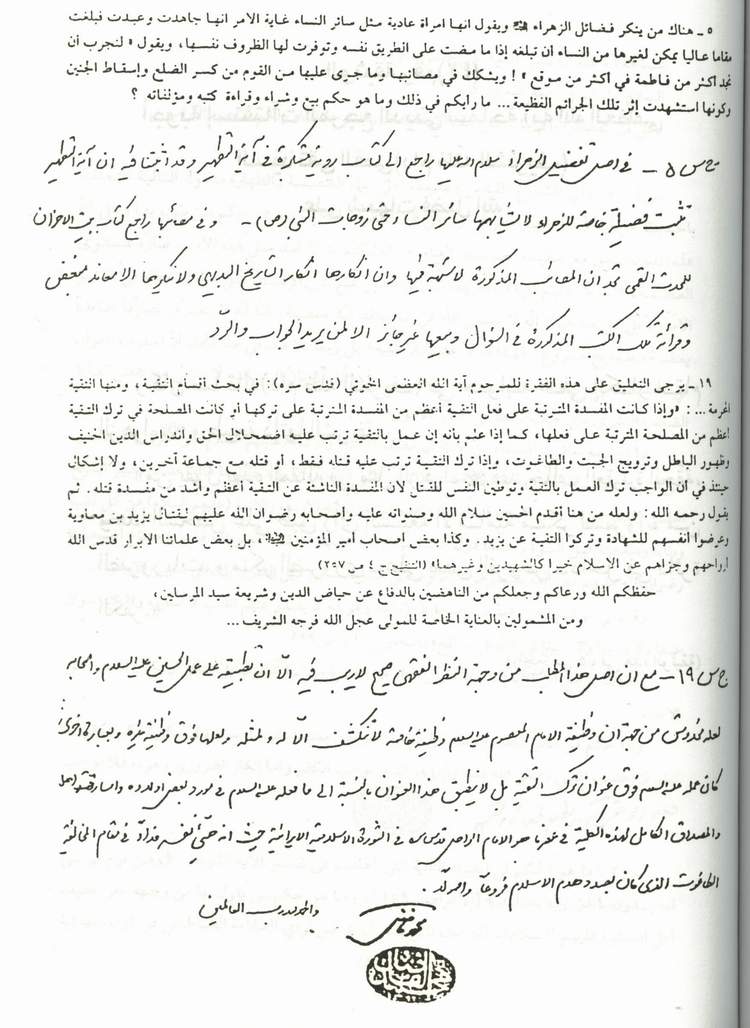 ٥ ـ هناك من ينكر فضائل الزهراء ويقول انها امرأة عادية مثل سائر النساء غاية الامر انها جاهدت وعبدت فبلغت
مقاما عاليا يمكن لغيرها من النساء أن تبلغه إذا ما مضت على الطريق نفسه وتوفرت لها الظروف نفسها، ويقول «لنجرب أن
نجد اكثر من فاطمة في اكثر من موقع» ! ويشكك في مصائبها وما جرى عليها من القوم من كسر الضلع وإسقاط الجنين
وكونها استشهدت إثر تلك الجرائم الفظيعة... ما رايكم في ذلك وما هو حكم بيع وشراء وقراءة كتبه ومؤلفاته ؟
ج س ٥ ـ في اصل تفضيل الزهراء سلام الله عليها راجع الى كتاب رؤية مبتكرة في آية التطهير وقد اثبتنا فيه ان آية التطهير
تثبت فضيلة خاصة للزهراء لا يشابهها سائر النساء حتى زوجات النبي (ص) ـ وفي مصائبها راجع كتاب بيت الاحزان
للمحدث القمي تجد ان المصائب المذكورة لا شبهة فيها وان انكارها انكار التاريخ البديهي ولا ينكرهما الا معاند مبغض
وقرائة تلك الكتب المذكورة في السؤال وبيعها غير جائز الا لمن يريد الجواب والرّد
١٩ ـ يرجى التعليق على هذه الفقرة للمرحوم آية الله العظمى الخوئي (قدس سره): في بحث أقسام التقية، ومنها التقية
المحرمة...: «وإذا كانت المفسدة المترتبة على فعل التقية أعظم من المفسدة المترتبة على تركها أو كانت المصلحة في ترك التقية
أعظم من المصلحة المترتبة على فعلها، كما إذا علم بأنه إن عمل بالتقية ترتب عليه اضمحلال الحق واندراس الدين الحنيف
وظهور الباطل وترويج الجبت والطاغوت، وإذا ترك التقية ترتب عليه قتله فقط، أو قتله مع جماعة آخرين، ولا إشكال
حينئذ في أن الواجب ترك العمل بالتقية وتوطين النفس للقتل لأن المفسدة الناشئة عن التقية أعظم وأشد من مفسدة قتله. ثم
يقول رحمه الله: ولعله من هنا أقدم الحسين سلام الله وصلواته عليه واصحابه رضوان الله عليهم لقتال يزيد بن معاوية
وعرضوا أنفسهم للشهادة وتركوا التقية عن يزيد. وكذا بعض اصحاب أمير المؤمنين، بل بعض علمائنا الابرار قدس الله
أرواحهم وجزاهم عن الاسلام خيرا كالشهيدين وغيرهما» (التنقيح ج ٤ ص ٢٥٧)
حفظكم الله ورعاكم وجعلكم من الناهضين بالدفاع عن حياض الدين وشريعة سيد المرسلين،
ومن المشمولين بالعناية الخاصة للمولى عجل الله فرجه الشريف...
ج س ١٩ ـ مع ان اصل هذا المطلب من وجهة النظر الفقهي صحيح لا ريب فيه الّا ان تطبيقه على عمل الحسين عليه السلام واصحابه
لعله مخدوش من جهة ان وظيفة الامام المعصوم عليه السلام وظيفة خاصة لا تنكشف الّا له ولمثله ولعلها فوق وظيفة غيره وبعبارة اخرى
كان عمله عليه السلام فوق عنوان ترك التقية بل لا ينطبق هذا العنوان بالنسبة الى ما فعله عليه السلام في مورد بعض اولاده
والمصداق الكامل لهذه الكلية في عصرنا هو الامام الراحل قدس سره في الثورة الاسلامية الايرانية حيث انه نفسه في مقام المخالفة
الطاغوت الذي كان بصدد هدم الاسلام فروعاً واصولاً.
والحمد لله رب العالمين